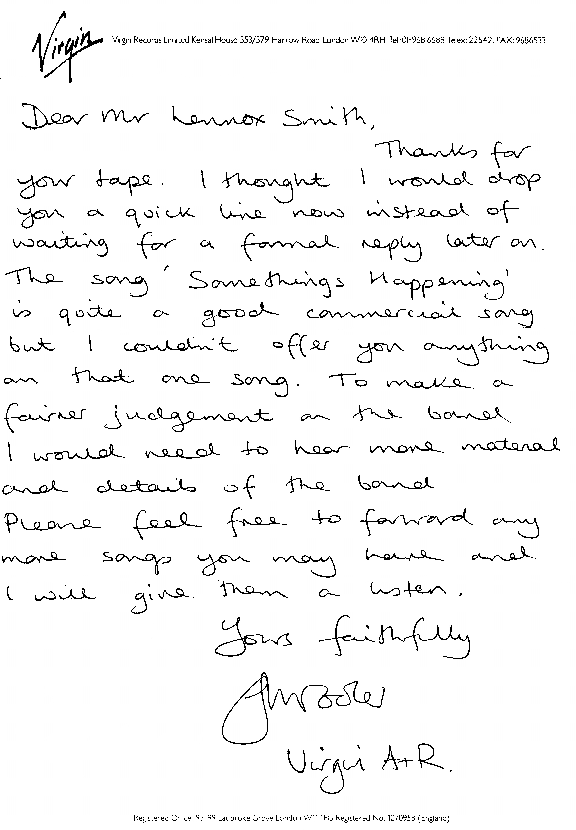 Virgin
Virgin Records Limited Kensal House 553/579 Harrow Road London W10 4RH Tel: 01-968 6688 Telex: 22542 FAX: 9686533
Dear Mr Lennox Smith,
Thanks for
your tape. I thought I would drop
you a quick line now instead of
waiting for a formal reply later on.
The song 'Somethings Happening'
is quite a good commercial song
but I couldn't offer you anything
on that one song. To make a
fairer judgement on the band
I would need to hear more material
and details of the band
Please feel free to forward any
more songs you may have and
I will give them a listen.
Yours faithfully
Virgin A+R.
Registered Office: Ladbroke Grove London W11 Registered No. (England)